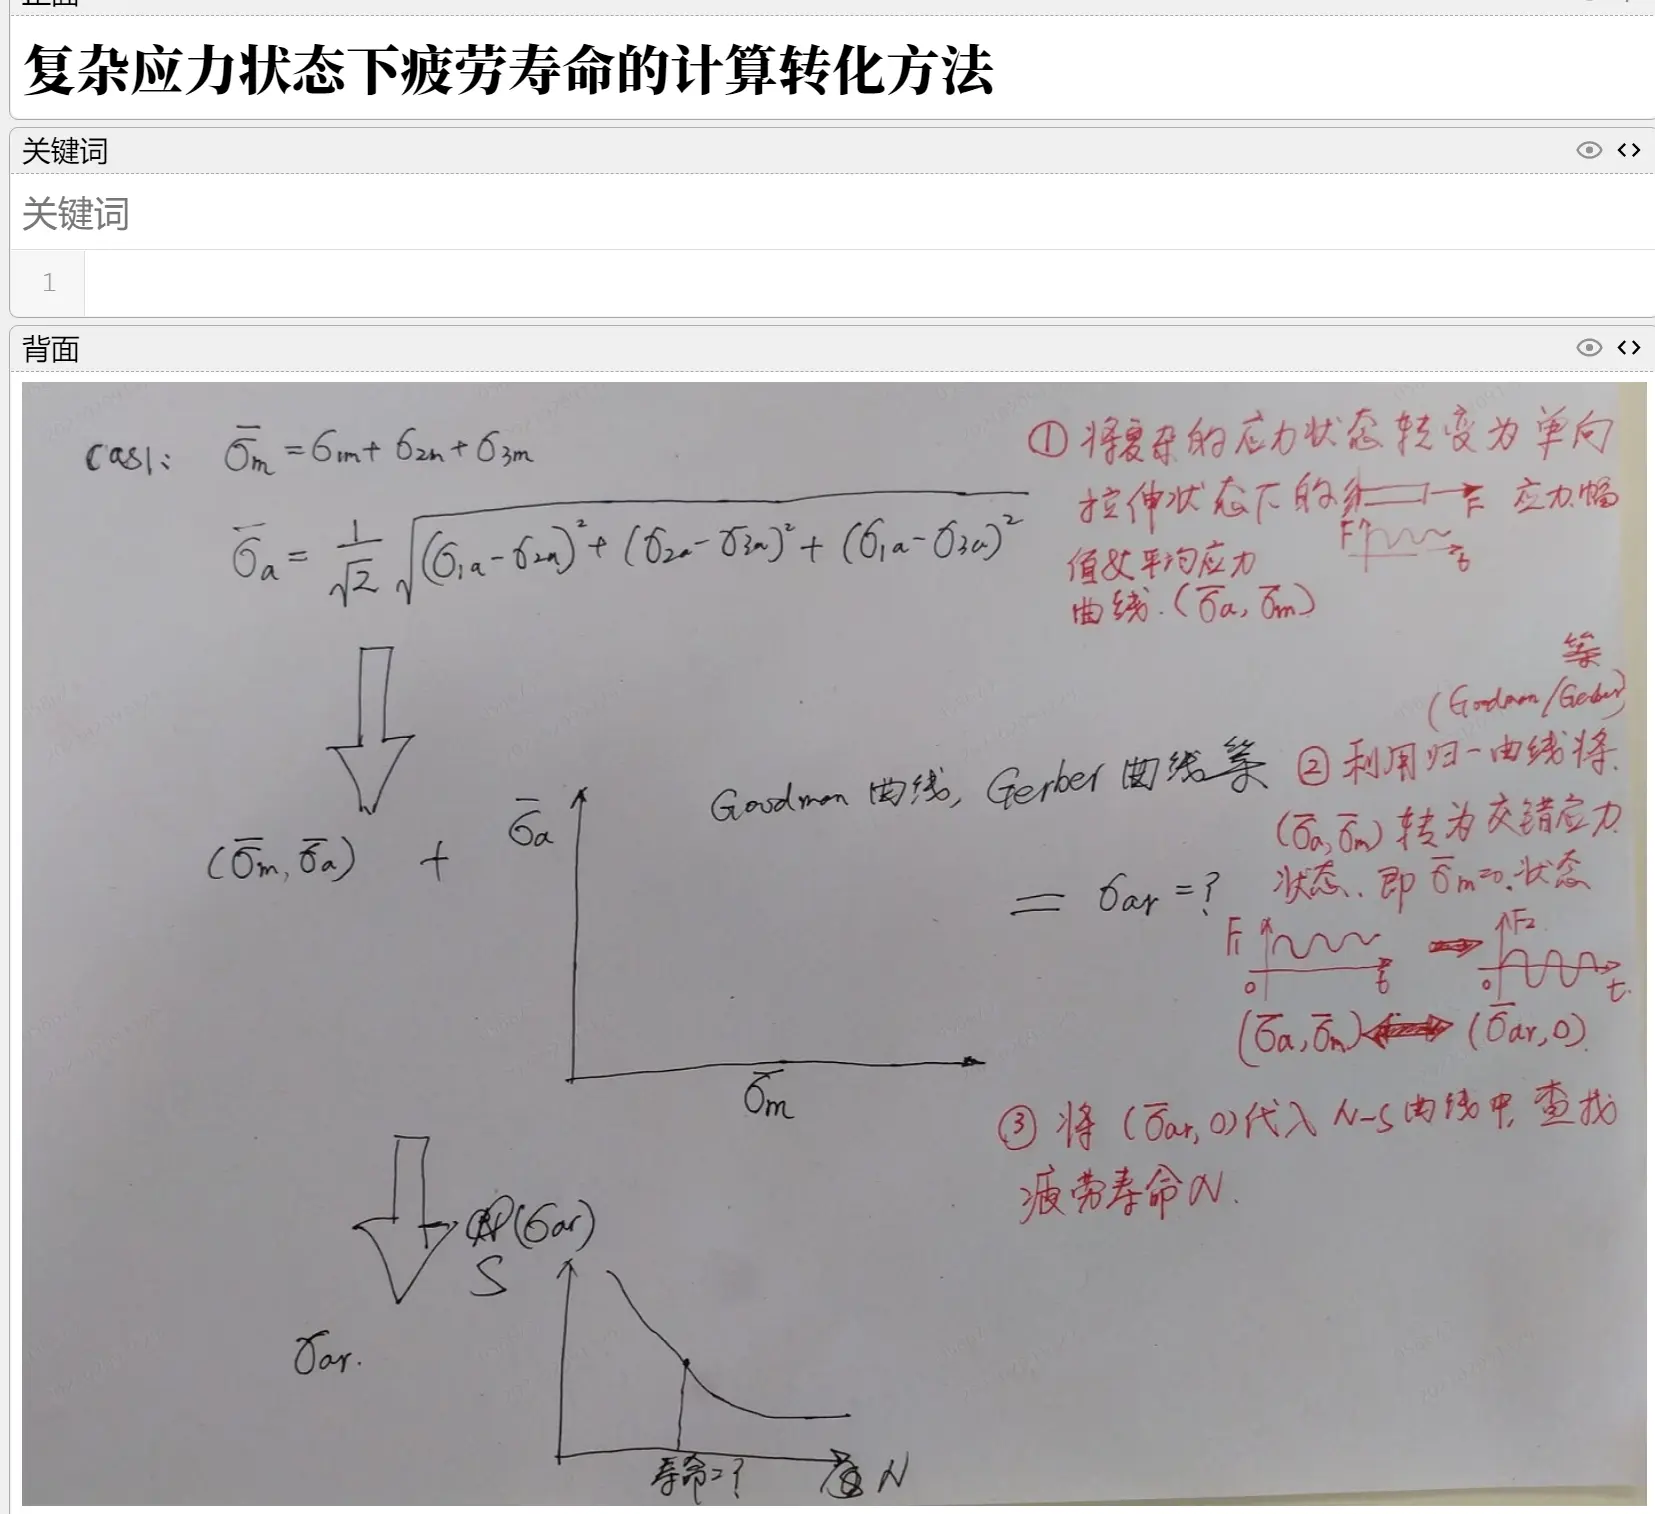 正面
复杂应力状态下疲劳寿命的计算转化方法
关键词
关键词
1
背面
cas1: σ̄m = σ1m + σ2m + σ3m
σ̄a = 1/√2 √(σ1a-σ2a)² + (σ2a-σ3a)² + (σ1a-σ3a)²
① 将复杂的应力状态转变为单向
拉伸状态下的 F 应力幅
F t
值及平均应力
曲线.(σ̄a, σ̄m)
(σ̄m, σ̄a) + σ̄a
σ̄m
Goodman 曲线, Gerber 曲线等
= σar = ?
等
(Goodman/Gerber)
② 利用归一曲线将
(σ̄a, σ̄m) 转为交错应力
状态. 即 σ̄m=0.状态
F1 0 t
F2 0 t.
(σ̄a, σ̄m) (σ̄ar, 0)
③ 将 (σ̄ar, 0)代入 N-S曲线中, 查找
疲劳寿命N.
(σar)
S
σar.
寿命=? N